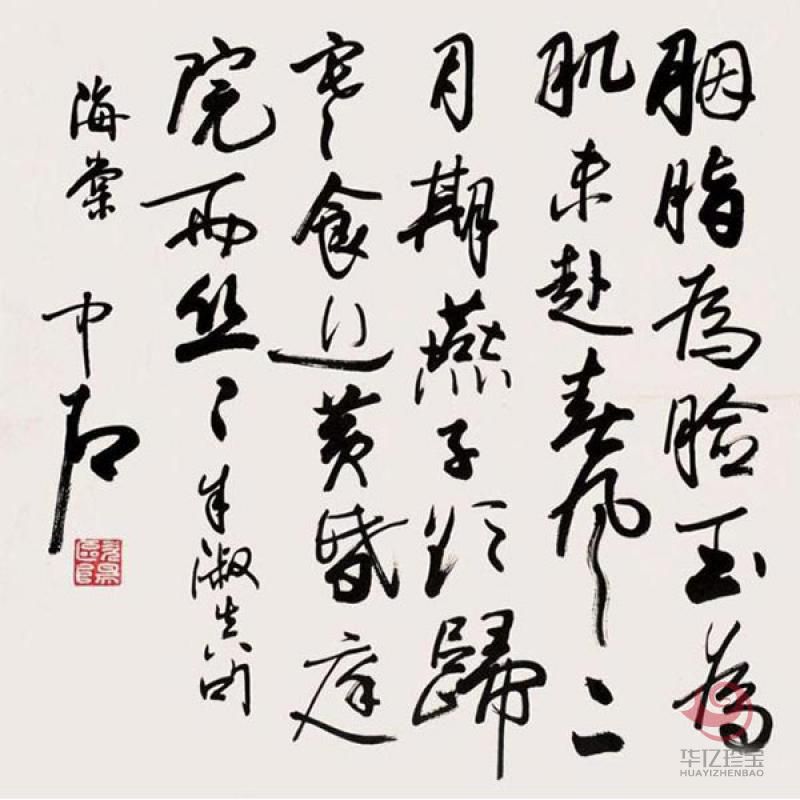 胭脂為臉玉為
肌未赴春風二
月期燕子欲歸
寒食近黄昏庭
院雨丝〻朱淑真詠
海棠 中石
华亿珍宝
HUAYIZHENBAO